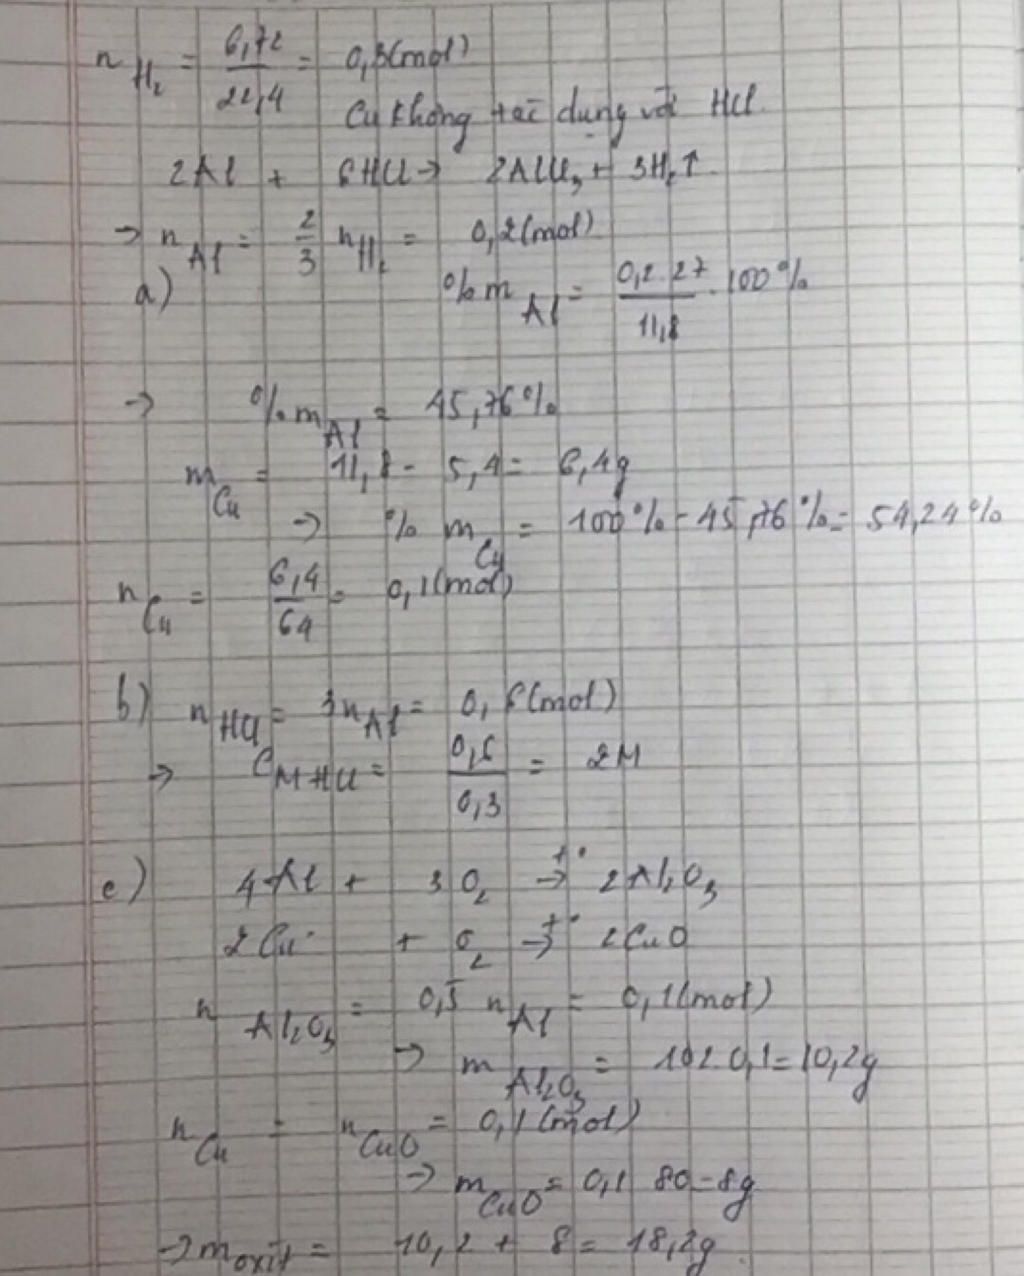 n H₂ = 6,72/22,4 = 0,3(mol)
Cu không tác dụng với HCl.
2Al + 6HCl → 2AlCl₃ + 3H₂↑
→ n Al = 2/3 n H₂ = 0,2(mol)
a) %m Al = 0,2.27/11,8 . 100%
→ %m Al = 45,76%
m Cu = 11,8 - 5,4 = 6,4g
→ % m Cu = 100% - 45,76% = 54,24%
n Cu = 6,4/64 = 0,1(mol)
b) n HCl = 3n Al = 0,6(mol)
→ C M HCl = 0,6/0,3 = 2M
c) 4Al + 3O₂ →t° 2Al₂O₃
2Cu + O₂ →t° 2CuO
n Al₂O₃ = 0,5 n Al = 0,1(mol)
→ m Al₂O₃ = 102.0,1 = 10,2g
n Cu = n CuO = 0,1(mol)
→ m CuO = 0,1 80 = 8g
→ m oxit = 10,2 + 8 = 18,2g.